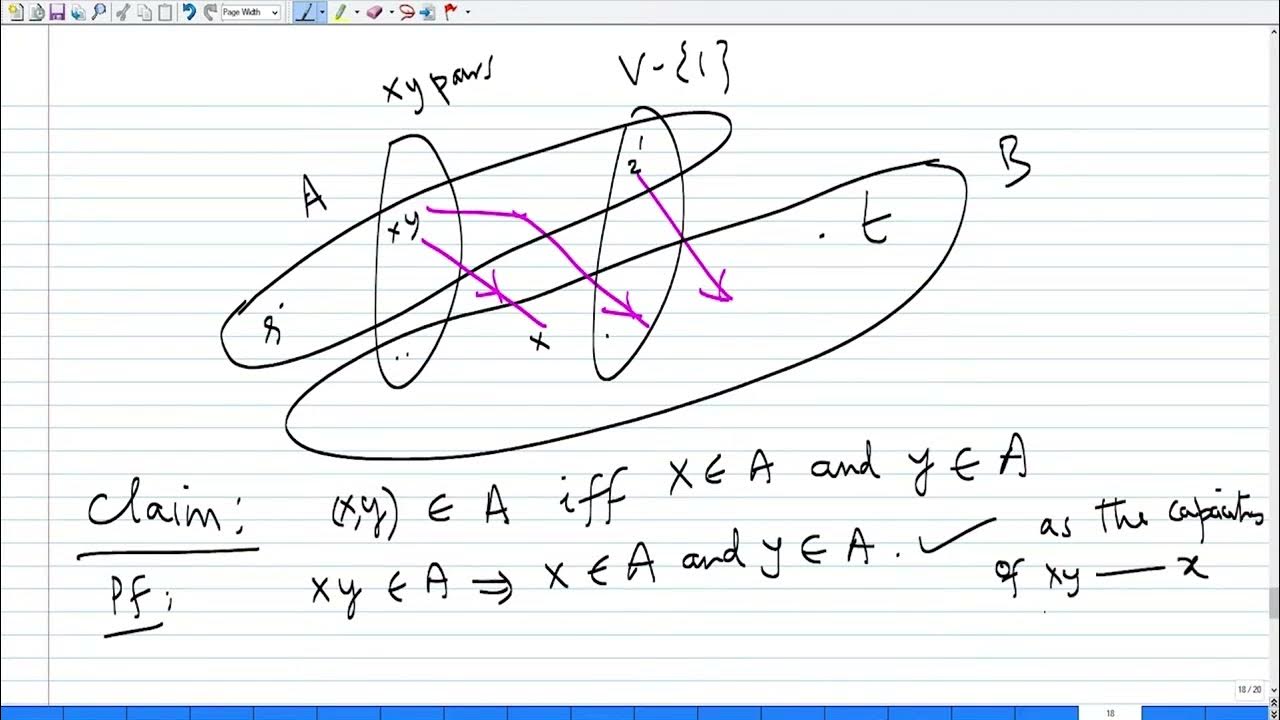 Page Width
xy pairs
V-{1}
A
B
1
2
xy
t
s
x
Claim: (x,y) ∈ A iff x ∈ A and y ∈ A
Pf: xy ∈ A ⇒ x ∈ A and y ∈ A. ✓ as the capacities
of xy — x
18 / 20
18